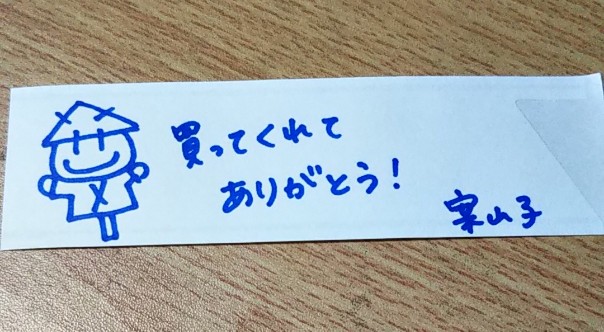 買ってくれて
ありがとう!
案山子